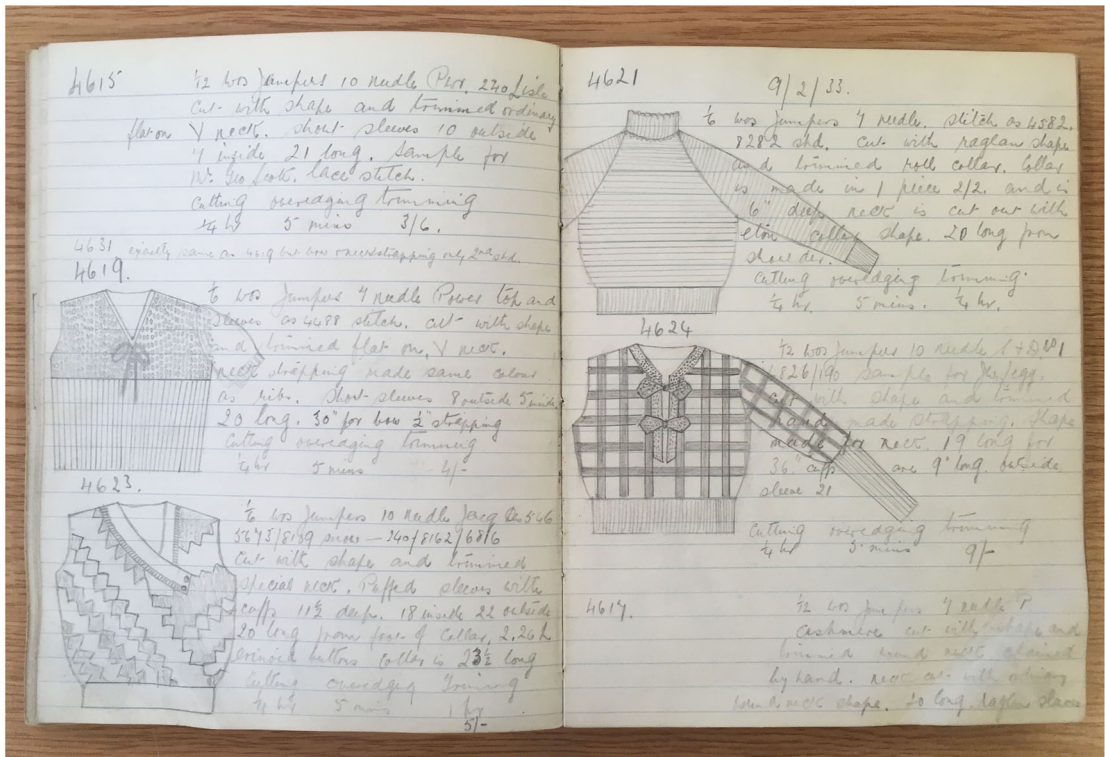 4615
1/2 wos Jumpers 10 needle Pwr. 240 Lisle
cut with shape and trimmed ordinary
flat one V neck. short sleeves 10 outside
7 inside 21 long. Sample for
Mr. Geo Scott. lace stitch.
Cutting overedging trimming
1/4 hr 5 mins 3/6.
4631 exactly same as 4619 but bow only 2nd std.
4619.
1/6 wos Jumpers 7 needle Power top and
sleeves as 4488 stitch. cut with shape
and trimmed flat one, V neck.
neck strapping made same colour
as ribs. Short sleeves 8 outside 5 inside.
20 long. 30" for bow 1/2" strapping
Cutting overedging trimming
1/4 hr 5 mins 4/-
4623.
1/6 wos Jumpers 10 needle Jacq Des 546
5673/8139 340/8162/6816
Cut with shape and trimmed
special neck. Puffed sleeves with
cuffs 11 1/2 deep. 18 inside 22 outside
20 long from foot of collar, 2, 26 h
buttons collar is 23 1/2 long
Cutting overedging Trimming
1/4 hr 5 mins 1 hr
5/-
4621
9/2/33.
1/6 wos Jumpers 7 needle. stitch as 4582.
8282 std. cut with raglan shape
and trimmed roll collar. Collar
is made in 1 piece 2/2. and is
6" deep neck is cut out with
eton collar shape. 20 long from
shoulder.
Cutting overedging trimming.
1/4 hr. 5 mins. 1/4 hr.
4624
1/2 wos Jumpers 10 needle
6826/190 sample for
cut with shape and trimmed
hand made strapping. Shape
made for neck. 19 long for
36." cuffs are 9" long. outside
sleeve 21
Cutting overedging trimming
1/4 hr 5 mins 9/-
4617.
1/2 wos Jumpers 7 needle
cashmere cut with shape and
trimmed round neck
by hand. neck cut with ordinary
round neck shape. 20 long. raglan sleeves